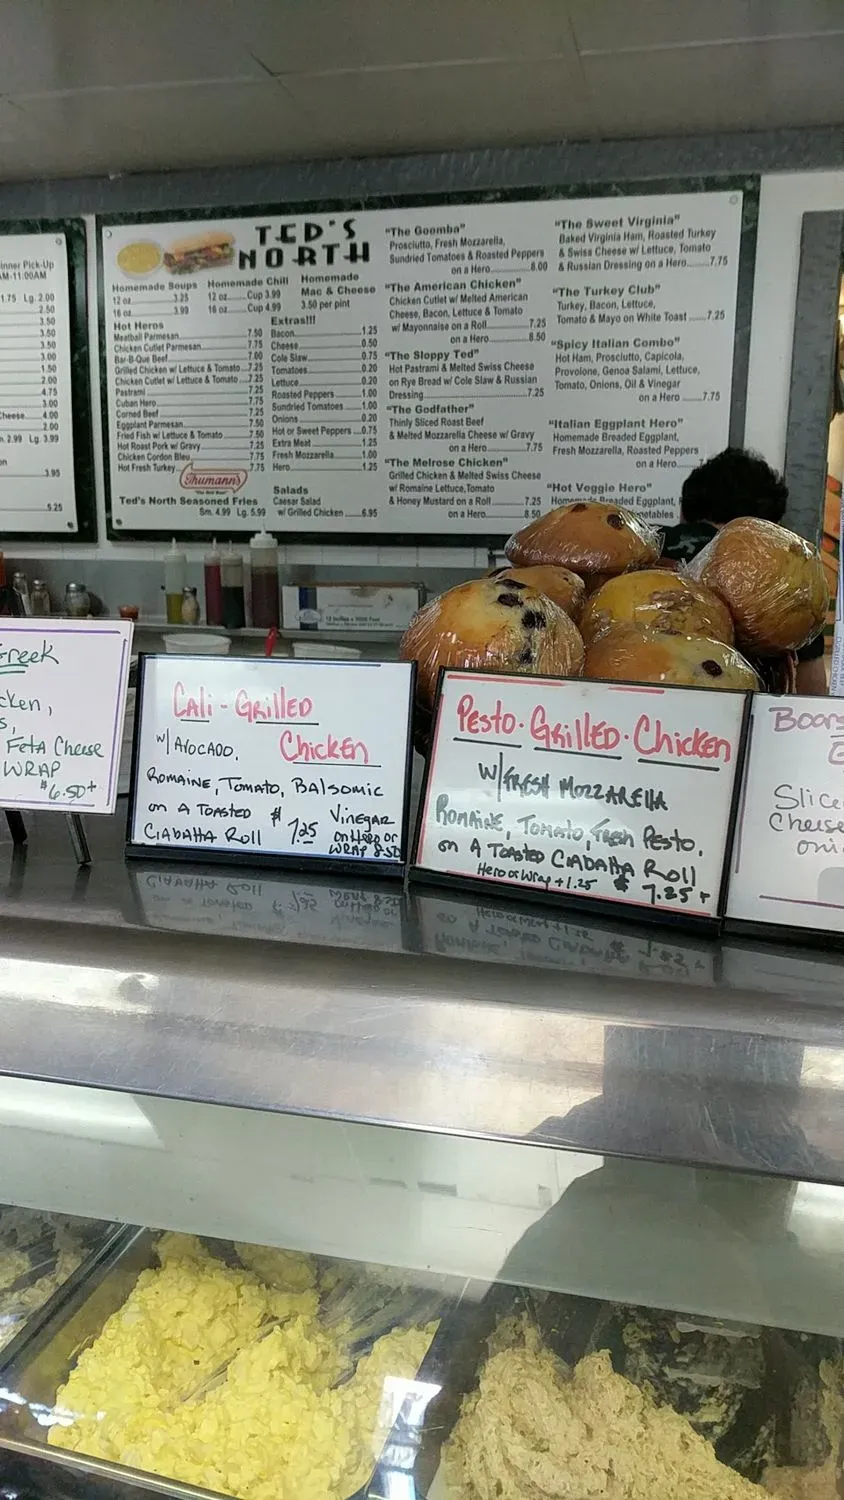 inner Pick-Up
AM-11:00AM
1.75 Lg. 2.00
2.50
3.50
3.50
3.50
3.00
1.50
2.00
4.75
3.00
Cheese 4.00
2.00
2.99 Lg. 3.99
3.95
5.25
TED'S
NORTH
Homemade Soups
12 oz. 3.25
16 oz. 3.99
Homemade Chili
12 oz. Cup 3.99
16 oz. Cup 4.99
Homemade
Mac & Cheese
3.50 per pint
Hot Heros
Meatball Parmesan 7.50
Chicken Cutlet Parmesan 7.75
Bar-B-Que Beef 7.00
Grilled Chicken w/ Lettuce & Tomato 7.25
Chicken Cutlet w/ Lettuce & Tomato 7.25
Pastrami 7.25
Cuban Hero 7.75
Corned Beef 7.25
Eggplant Parmesan 7.50
Fried Fish w/ Lettuce & Tomato 7.50
Hot Roast Pork w/ Gravy 7.25
Chicken Cordon Bleu 7.75
Hot Fresh Turkey 7.75
Thumann's
Ted's North Seasoned Fries
Sm. 4.99 Lg. 5.99
Extras!!!
Bacon 1.25
Cheese 0.50
Cole Slaw 0.75
Tomatoes 0.20
Lettuce 0.20
Roasted Peppers 1.00
Sundried Tomatoes 1.00
Onions 0.20
Hot or Sweet Peppers 0.75
Extra Meat 1.25
Fresh Mozzarella 1.00
Hero 1.25
Salads
Caesar Salad
w/ Grilled Chicken 6.95
"The Goomba"
Prosciutto, Fresh Mozzarella,
Sundried Tomatoes & Roasted Peppers
on a Hero 8.00
"The American Chicken"
Chicken Cutlet w/ Melted American
Cheese, Bacon, Lettuce & Tomato
w/ Mayonnaise on a Roll 7.25
on a Hero 8.50
"The Sloppy Ted"
Hot Pastrami & Melted Swiss Cheese
on Rye Bread w/ Cole Slaw & Russian
Dressing 7.25
"The Godfather"
Thinly Sliced Roast Beef
& Melted Mozzarella Cheese w/ Gravy
on a Hero 7.75
"The Melrose Chicken"
Grilled Chicken & Melted Swiss Cheese
w/ Romaine Lettuce, Tomato
& Honey Mustard on a Roll 7.25
on a Hero 8.50
"The Sweet Virginia"
Baked Virginia Ham, Roasted Turkey
& Swiss Cheese w/ Lettuce, Tomato
& Russian Dressing on a Hero 7.75
"The Turkey Club"
Turkey, Bacon, Lettuce,
Tomato & Mayo on White Toast 7.25
"Spicy Italian Combo"
Hot Ham, Prosciutto, Capicola,
Provolone, Genoa Salami, Lettuce,
Tomato, Onions, Oil & Vinegar
on a Hero 7.75
"Italian Eggplant Hero"
Homemade Breaded Eggplant,
Fresh Mozzarella, Roasted Peppers
on a Hero
"Hot Veggie Hero"
Homemade Breaded Eggplant,
Greek
cken,
s,
Feta Cheese
WRAP
$6.50+
Cali - Grilled
Chicken
w/ Avocado,
Romaine, Tomato, Balsomic
Vinegar
on a Toasted
Ciabatta Roll
$7.25
on Hero or
Wrap 8.50
Pesto. Grilled. Chicken
w/ Fresh Mozzarella
Romaine, Tomato, Fresh Pesto,
on a Toasted Ciabatta Roll
Hero or Wrap +1.25 $7.25+
Boars
Slice
Cheese
oni